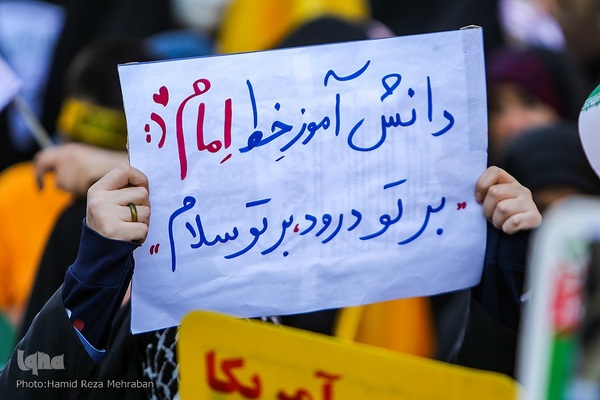 دانش آموز خط اِمام :)
"بر تو درود، بر تو سلام"
آمریکا
iqna
Photo:Hamid Reza Mehraban